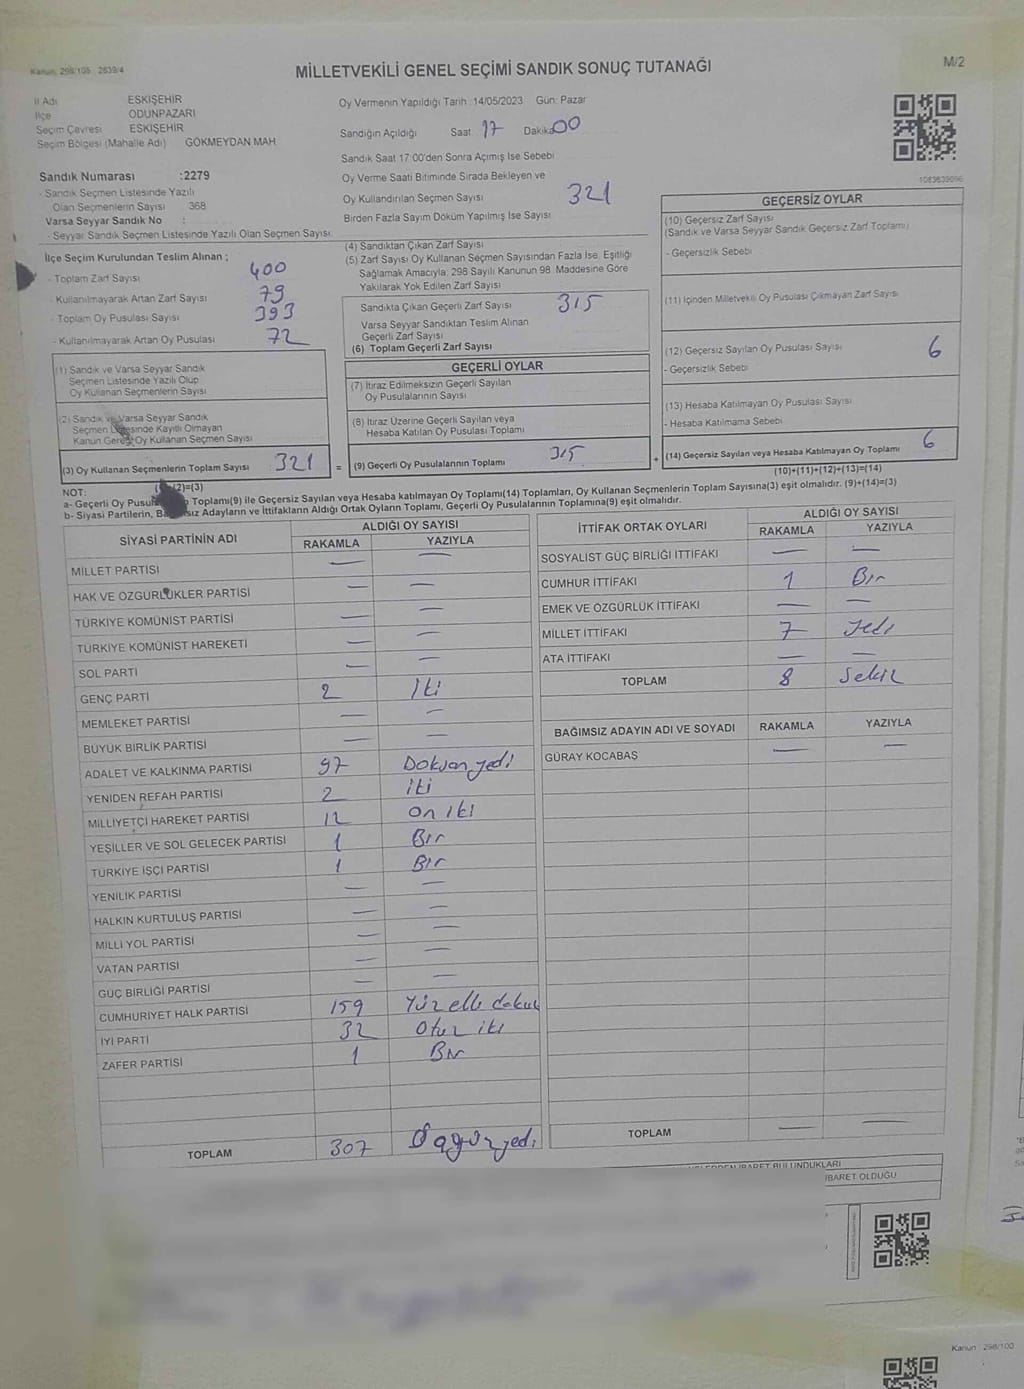 Kanun: 298/105 2839/4
MİLLETVEKİLİ GENEL SEÇİMİ SANDIK SONUÇ TUTANAĞI
M/2
İl Adı ESKİŞEHİR
İlçe ODUNPAZARI
Seçim Çevresi ESKİŞEHİR
Seçim Bölgesi (Mahalle Adı) GÖKMEYDAN MAH.
Sandık Numarası :2279
- Sandık Seçmen Listesinde Yazılı
Olan Seçmenlerin Sayısı 368
Varsa Seyyar Sandık No :
- Seyyar Sandık Seçmen Listesinde Yazılı Olan Seçmen Sayısı:
Oy Vermenin Yapıldığı Tarih :14/05/2023 Gün: Pazar
Sandığın Açıldığı Saat 17 Dakika 00
Sandık Saat 17:00'den Sonra Açımış İse Sebebi
Oy Verme Saati Bitiminde Sırada Bekleyen ve
Oy Kullandırılan Seçmen Sayısı 321
Birden Fazla Sayım Döküm Yapılmış İse Sayısı
1083639096
İlçe Seçim Kurulundan Teslim Alınan ;
- Toplam Zarf Sayısı 400
- Kullanılmayarak Artan Zarf Sayısı 79
- Toplam Oy Pusulası Sayısı 393
- Kullanılmayarak Artan Oy Pusulası 72
(1) Sandık ve Varsa Seyyar Sandık
Seçmen Listesinde Yazılı Olup
Oy Kullanan Seçmenlerin Sayısı
(2) Sandık ve Varsa Seyyar Sandık
Seçmen Listesinde Kayıtlı Olmayan
Kanun Gereği Oy Kullanan Seçmen Sayısı
(3) Oy Kullanan Seçmenlerin Toplam Sayısı 321 =
(4) Sandıktan Çıkan Zarf Sayısı
(5) Zarf Sayısı Oy Kullanan Seçmen Sayısından Fazla İse, Eşitliği
Sağlamak Amacıyla; 298 Sayılı Kanunun 98. Maddesine Göre
Yakılarak Yok Edilen Zarf Sayısı
Sandıkta Çıkan Geçerli Zarf Sayısı 315
Varsa Seyyar Sandıktan Teslim Alınan
Geçerli Zarf Sayısı
(6) Toplam Geçerli Zarf Sayısı
GEÇERLİ OYLAR
(7) İtiraz Edilmeksizin Geçerli Sayılan
Oy Pusulalarının Sayısı
(8) İtiraz Üzerine Geçerli Sayılan veya
Hesaba Katılan Oy Pusulası Toplamı
(9) Geçerli Oy Pusulalarının Toplamı 315 +
GEÇERSİZ OYLAR
(10) Geçersiz Zarf Sayısı
(Sandık ve Varsa Seyyar Sandık Geçersiz Zarf Toplamı)
- Geçersizlik Sebebi
(11) İçinden Milletvekili Oy Pusulası Çıkmayan Zarf Sayısı
(12) Geçersiz Sayılan Oy Pusulası Sayısı 6
- Geçersizlik Sebebi
(13) Hesaba Katılmayan Oy Pusulası Sayısı
- Hesaba Katılmama Sebebi
(14) Geçersiz Sayılan veya Hesaba Katılmayan Oy Toplamı 6
(10)+(11)+(12)+(13)=(14)
(2)=(3)
NOT:
a- Geçerli Oy Toplamı(9) ile Geçersiz Sayılan veya Hesaba katılmayan Oy Toplamı(14) Toplamları, Oy Kullanan Seçmenlerin Toplam Sayısına(3) eşit olmalıdır. (9)+(14)=(3)
b- Siyasi Partilerin, Bağımsız Adayların ve İttifakların Aldığı Ortak Oyların Toplamı, Geçerli Oy Pusulalarının Toplamına(9) eşit olmalıdır.
SİYASİ PARTİNİN ADI ALDIĞI OY SAYISI
RAKAMLA YAZIYLA
MİLLET PARTİSİ — —
HAK VE ÖZGÜRLÜKLER PARTİSİ — —
TÜRKİYE KOMÜNİST PARTİSİ — —
TÜRKİYE KOMÜNİST HAREKETİ — —
SOL PARTİ — —
GENÇ PARTİ 2 İki
MEMLEKET PARTİSİ — —
BÜYÜK BİRLİK PARTİSİ — —
ADALET VE KALKINMA PARTİSİ 97 Doksan yedi
YENİDEN REFAH PARTİSİ 2 iki
MİLLİYETÇİ HAREKET PARTİSİ 12 on iki
YEŞİLLER VE SOL GELECEK PARTİSİ 1 Bir
TÜRKİYE İŞÇİ PARTİSİ 1 Bir
YENİLİK PARTİSİ — —
HALKIN KURTULUŞ PARTİSİ — —
MİLLİ YOL PARTİSİ — —
VATAN PARTİSİ — —
GÜÇ BİRLİĞİ PARTİSİ — —
CUMHURİYET HALK PARTİSİ 159 Yüz elli dokuz
İYİ PARTİ 32 Otuz iki
ZAFER PARTİSİ 1 Bir
TOPLAM 307 Üçyüz yedi
İTTİFAK ORTAK OYLARI ALDIĞI OY SAYISI
RAKAMLA YAZIYLA
SOSYALİST GÜÇ BİRLİĞİ İTTİFAKI — —
CUMHUR İTTİFAKI 1 Bir
EMEK VE ÖZGÜRLÜK İTTİFAKI — —
MİLLET İTTİFAKI 7 Yedi
ATA İTTİFAKI — —
TOPLAM 8 Sekiz
BAĞIMSIZ ADAYIN ADI VE SOYADI RAKAMLA YAZIYLA
GÜRAY KOCABAŞ — —
TOPLAM — —
İBARET BULUNDUKLARI
İBARET OLDUĞU
Kanun : 298/100